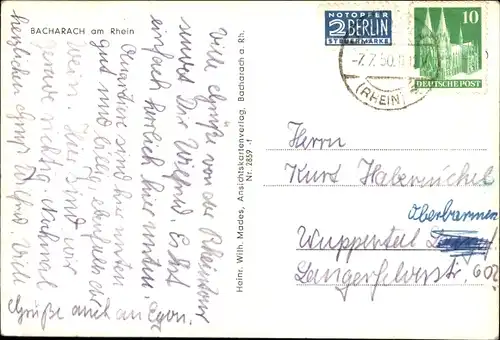 BACHARACH am Rhein
Viele Grüße von der Rheintour
sendet Dir Wilfried. Es ist
einfach herrlich hier unten.
Quartiere sind hier unten
gut und billig, ebenfalls der
Wein. Hier sind wir
gerade richtig
herzlichen Gruß Wilfried Viele
Grüße auch an Egon.
Heinr. Wilh. Mades, Ansichtskartenverlag, Bacharach a. Rh.
Nr. 2859 -f
NOTOPFER
2 BERLIN
STEUERMARKE
10
DEUTSCHE POST
-7.7.50
(RHEIN)
Herrn
Kurt Habernickel
Oberbarmen
Wuppertal
Langerfelderstr. 60a